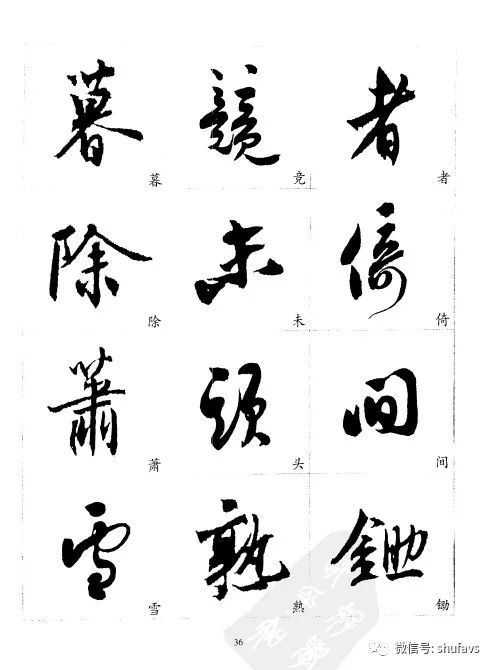 暮 競 者
暮 竞 者
除 未 倚
除 未 倚
蕭 頭 間
萧 头 间
雪 熟 鋤
雪 熟 锄
36
微信号: shufavs